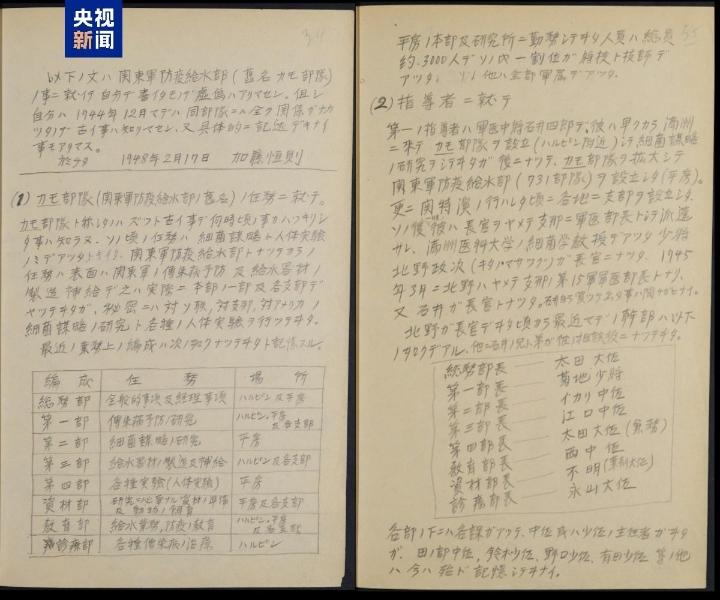 央视
新闻
以下ノ文ハ関東軍防疫給水部(舊名カモ部隊)
ノ事ニ就イテ自分デ書イタモノデ虚偽ハアリマセン。但シ
自分ハ1944年12月マデハ同部隊ニハ全ク関係ガナカ
ツタノデ古イ事ハ知リマセン、又具体的ニ記述デキナイ
事モアリマス。
1948年2月17日 加藤恒則
(1) カモ部隊(関東軍防疫給水部ノ舊名)ノ任務ニ就テ。
カモ部隊ト称シタノハズット古イ事デ何時頃ノ事カハッキリシ
タ事ハ知ラヌ。ソノ頃ノ任務ハ細菌謀略ト人体実験
ノミデアッタ 関東軍防疫給水部トナッテカラノ
任務ハ表面ハ関東軍ノ傳染病予防及給水器材ノ
製造補給デ之ハ実際ニ本部ノ一部及各支部デ
ヤッテヰタガ、秘密ニハ対ソ聯、対支那、対アメリカノ
細菌謀略ノ研究ト各種ノ人体実験ヲ行ッテヰタ。
最近ノ業務上ノ編成ハ次ノ如クナッテヰタト記憶スル。
編成 任務 場所
総務部 全般的事項及経理事項 ハルピン及平房
第一部 傳染病予防ノ研究 ハルピン、平房及各支部
第二部 細菌謀略ノ研究 平房
第三部 給水器材ノ製造及補給 ハルピン及各支部
第四部 各種実験(人体実験) 平房
資材部 研究ニ必要ナル資材ノ準備及動物ノ飼育 平房及各支部
教育部 給水業務、防疫ノ教育 ハルピン、平房及各支部
診療部 各種傳染病ノ治療 ハルピン
平房ノ本部及研究所ニ勤務シテヰタ人員ハ総員
約3000人デソノ内一割位ガ将校ト技師デ
アッタ。ソノ他ハ全部軍属デアッタ。
(2) 指導者ニ就テ
第一ノ指導者ハ軍医中将石井四郎デ、彼ハ早クカラ満洲
ニ来テカモ部隊ヲ設立(ハルビン附近)シテ細菌謀略
ノ研究ヲシテヰタガ後ニナッテ、カモ部隊ヲ拡大シテ
関東軍防疫給水部(731部隊)ヲ設立シタ(平房)。
更ニ関特演ノ行ハレタ頃ニ各地ニ支部ヲ設立シタ。
ソノ後彼ハ長官ヲヤメテ支那ニ軍医部長トシテ派遣
サレ、満洲医科大学ノ細菌学教授デアッタ少将
北野政次(キタノマサツグ)ガ長官ニナッタ。1945
年3月ニ北野ハヤメテ支那ノ第15軍軍医部長トナリ、
又石井ガ長官トナッタ。
北野ガ長官デヰタ頃カラ最近マデノ幹部ハ以下
ノ如クデアル、
総務部長 太田大佐
第一部長 菊地少将
第二部長 イカリ中佐
第三部長 江口中佐
第四部長 太田大佐(兼務)
教育部長 西中佐
資材部長 不明(薬剤大佐)
診療部長 永山大佐
各部ノ下ニハ各課ガアッテ、中佐或ハ少佐ノ主任者ガヰタ
ガ、田ノ部中佐、鈴木少佐、野口少佐、有田少佐等ノ他
ハ今ハ殆ド記憶シテヰナイ。